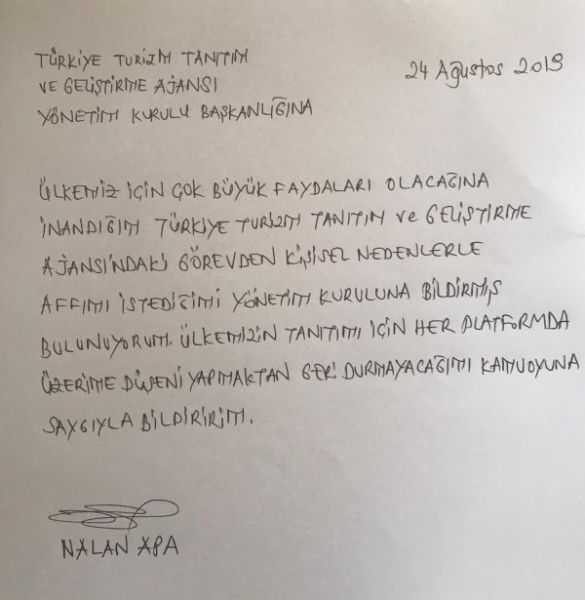 TÜRKİYE TURİZM TANITIM
VE GELİŞTİRME AJANSI
YÖNETİM KURULU BAŞKANLIĞINA
24 Ağustos 2019
ÜLKEMİZ İÇİN ÇOK BÜYÜK FAYDALARI OLACAĞINA
İNANDIĞIM TÜRKİYE TURİZM TANITIM VE GELİŞTİRME
AJANSI'NDAKİ GÖREVDEN KİŞİSEL NEDENLERLE
AFFIMI İSTEDİĞİMİ YÖNETİM KURULUNA BİLDİRMİŞ
BULUNUYORUM. ÜLKEMİZİN TANITIMI İÇİN HER PLATFORMDA
ÜZERİME DÜŞENİ YAPMAKTAN GERİ DURMAYACAĞIMI KAMUOYUNA
SAYGIYLA BİLDİRİRİM.
NALAN APA